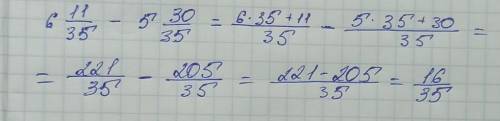 6 11/35 - 5 30/35 = (6·35+11)/35 - (5·35+30)/35 =
= 221/35 - 205/35 = (221-205)/35 = 16/35